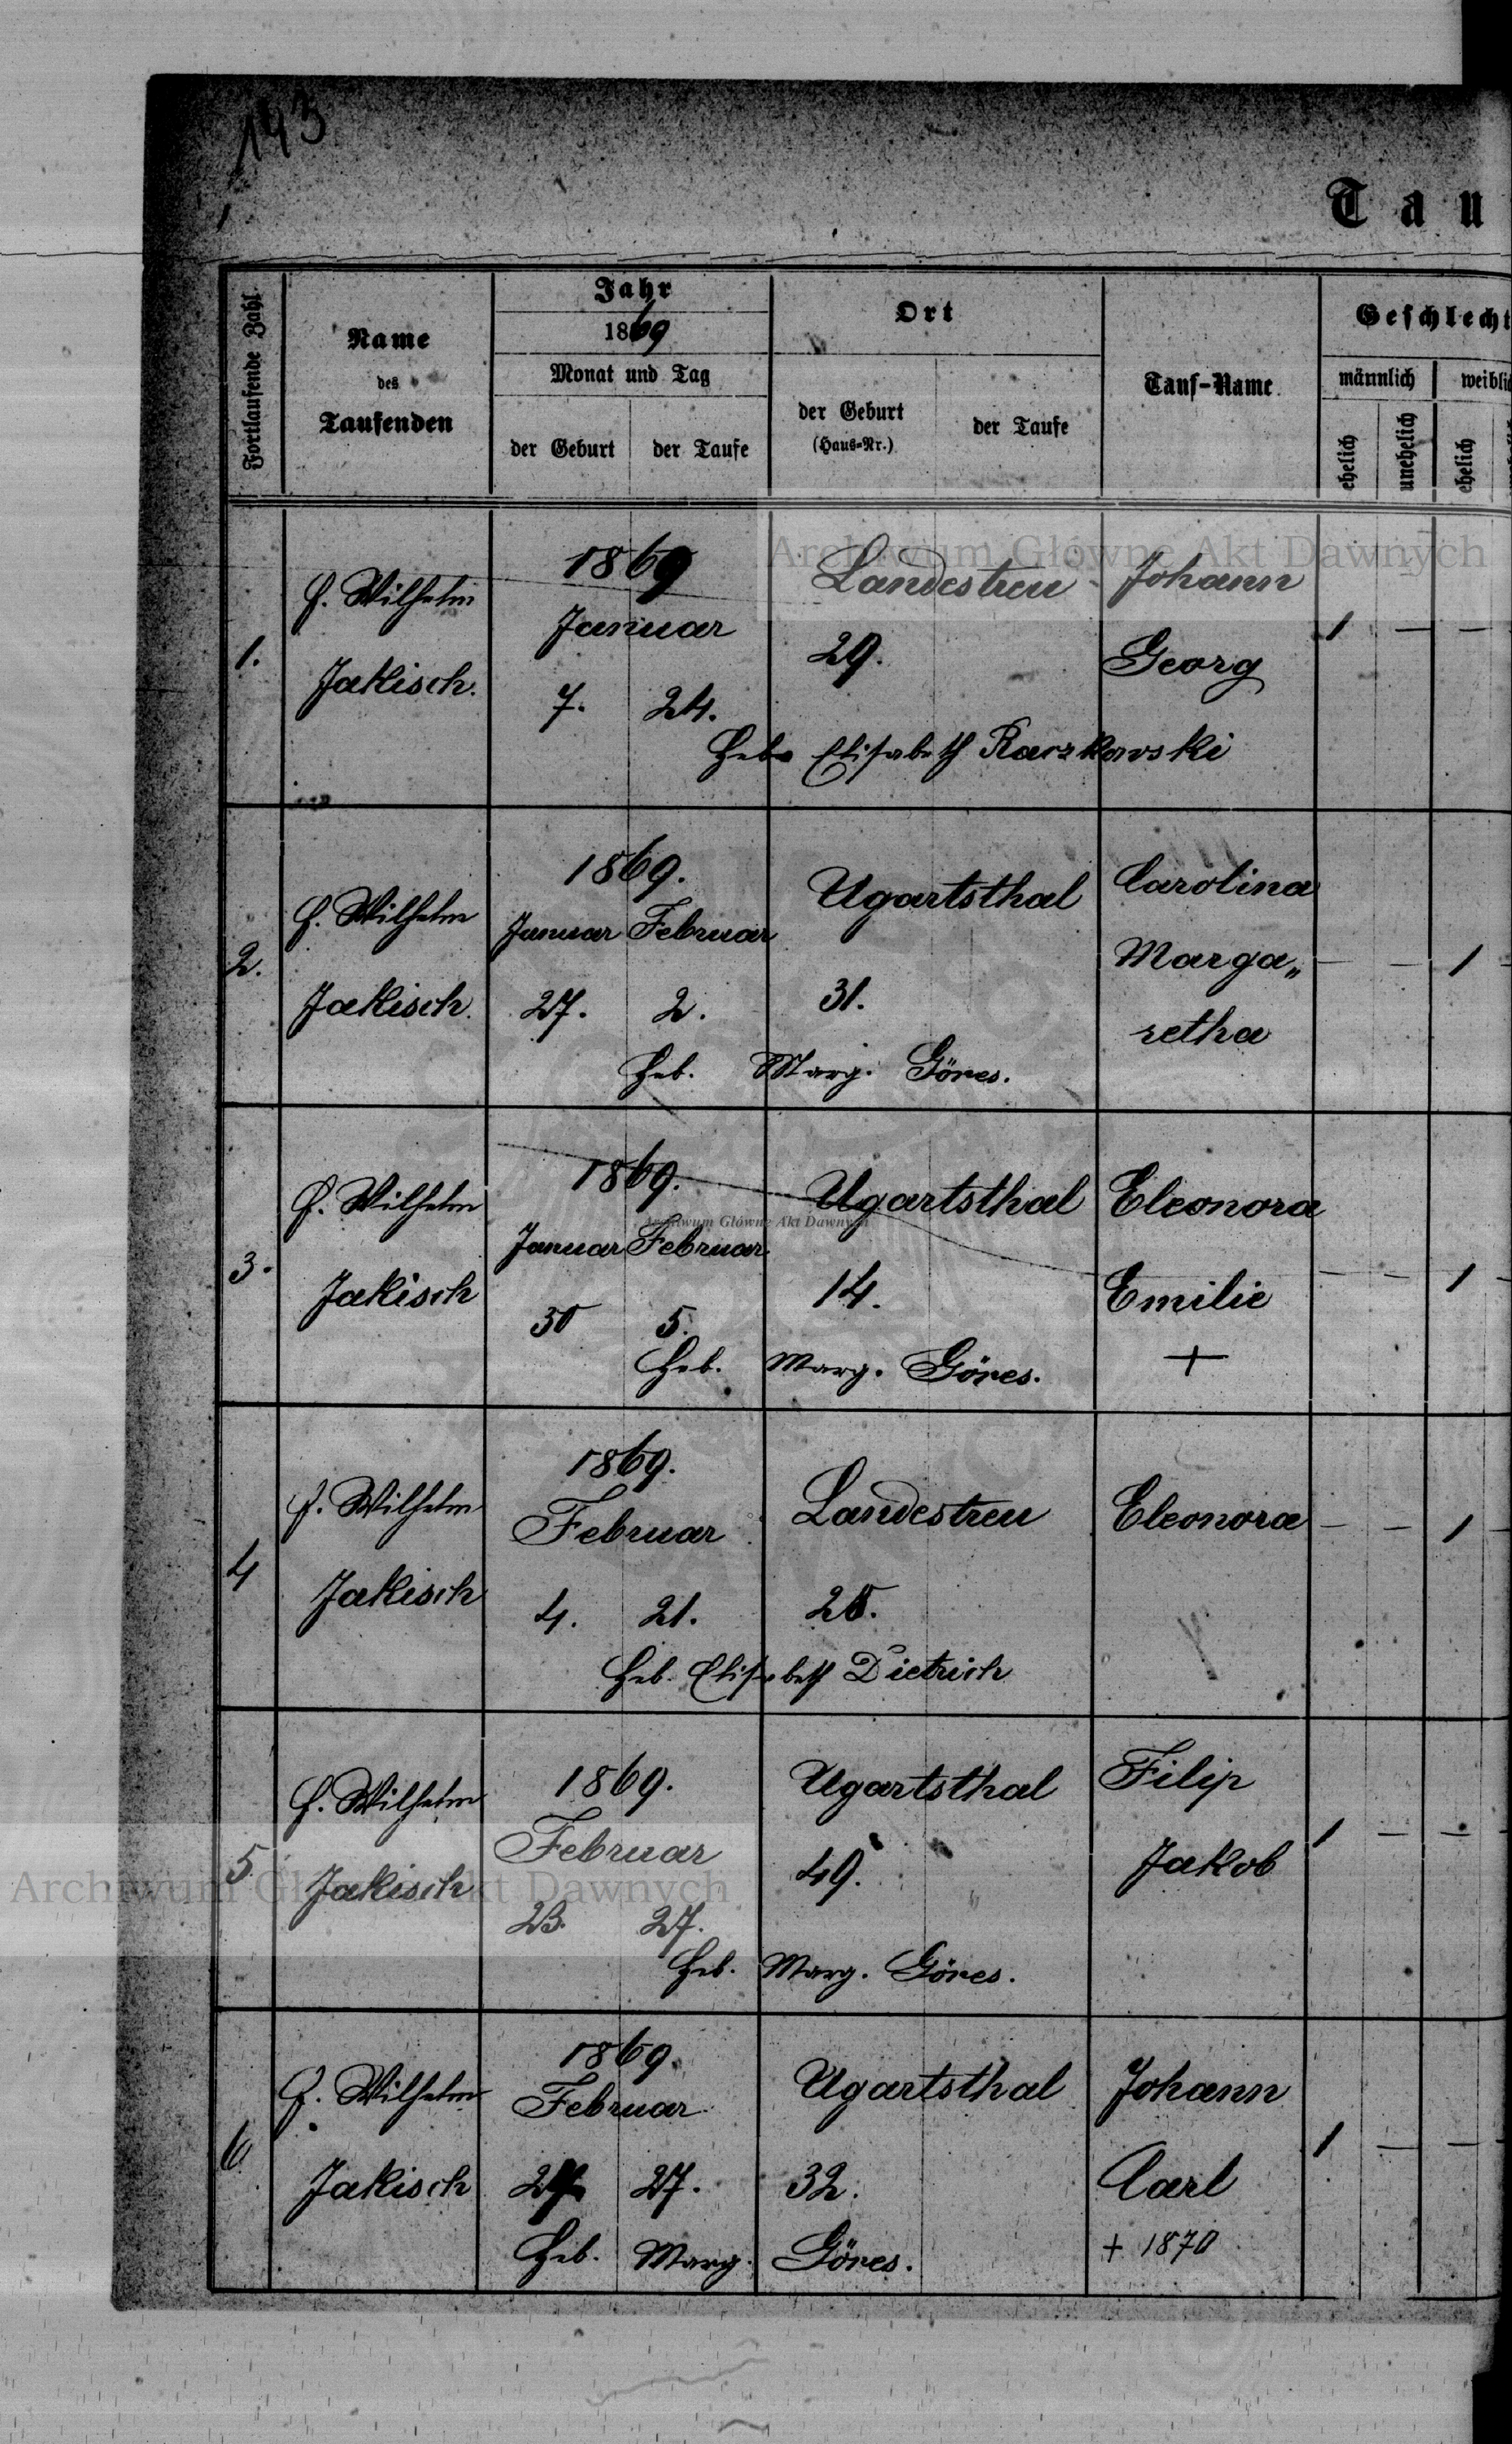 143
1
Tau
Fortlaufende Zahl
Name
des
Taufenden
Jahr
1869
Monat und Tag
der Geburt
der Taufe
Ort
der Geburt
(Haus-Nr.)
der Taufe
Tauf-Name
Geschlecht
männlich
weiblic
ehelich
unehelich
ehelich
Archiwum Główne Akt Dawnych
1.
Wilhelm
Jakisch.
1869
Januar
7. 24.
Landestreu
29.
Johann
Georg
1 — —
Heb. Elisabeth Raczkowski
2.
Wilhelm
Jakisch.
1869.
Januar Februar
27. 2.
Ugartsthal
31.
Carolina
Marga„
retha
— — 1
Heb. Marg. Göres.
3.
Wilhelm
Jakisch
1869.
Januar Februar
30 5.
Ugartsthal
Archiwum Główne Akt Dawnych
14.
Eleonora
Emilie
+
— — 1
Heb. Marg. Göres.
4
Wilhelm
Jakisch
1869.
Februar
4. 21.
Landestreu
Eleonora
— — 1
Heb. Elisabeth Dietrich
5
Wilhelm
Jakisch
1869.
Februar
23. 27.
Ugartsthal
49.
Filip
Jakob
1 — —
Archiwum Główne Akt Dawnych
Heb. Marg. Göres.
6
Wilhelm
Jakisch
1869.
Februar
27.
Ugartsthal
32.
Johann
Carl
+ 1870
1 — —
Heb. Marg. Göres.